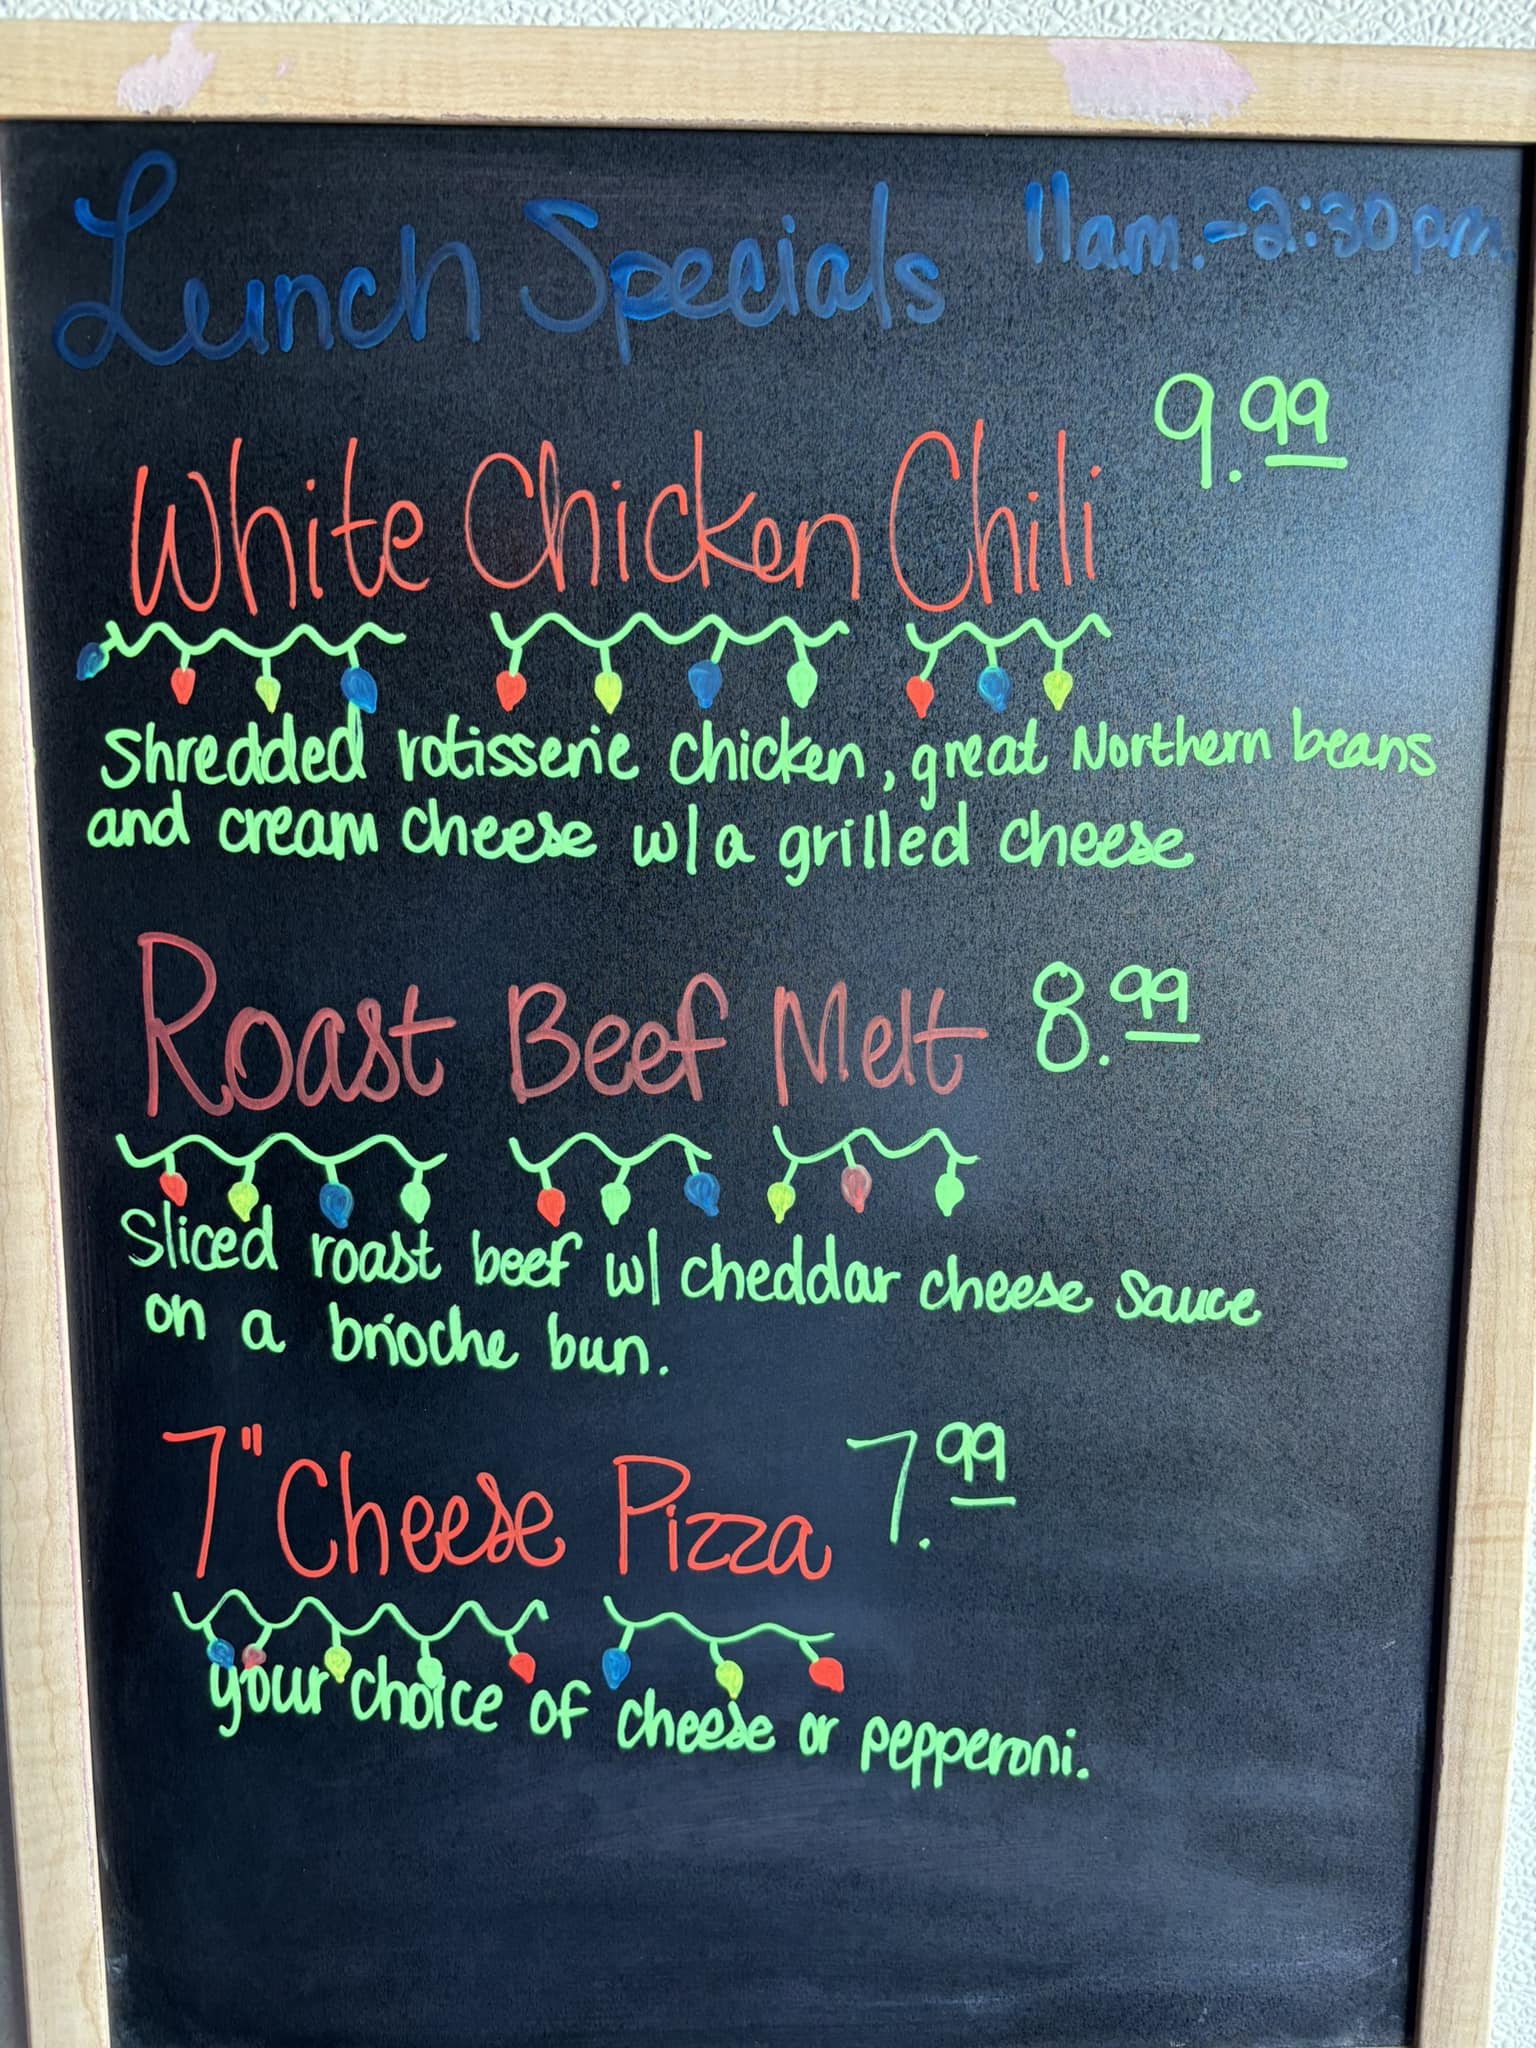 Lunch Specials 11am.-2:30pm.
White Chicken Chili 9.99
Shredded rotisserie chicken, great Northern beans
and cream cheese w/a grilled cheese
Roast Beef Melt 8.99
Sliced roast beef w/ cheddar cheese sauce
on a brioche bun.
7" Cheese Pizza 7.99
your choice of cheese or pepperoni.